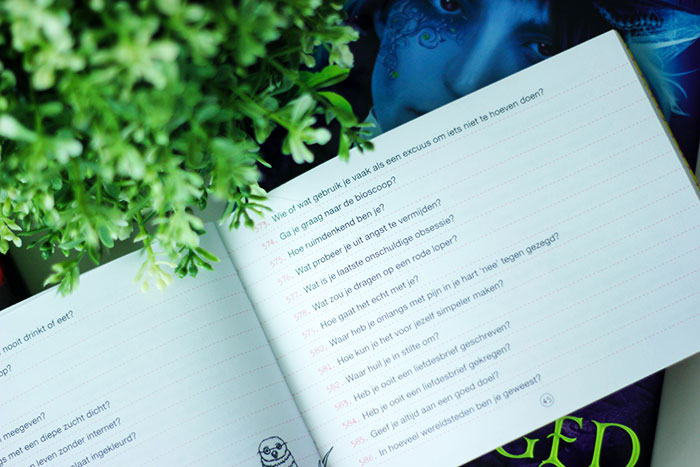 nooit drinkt of eet?
op?
meegeven?
gs met een diepe zucht dicht?
leven zonder internet?
plaat ingekleurd?
573. Wie of wat gebruik je vaak als een excuus om iets niet te hoeven doen?
574. Ga je graag naar de bioscoop?
575. Hoe ruimdenkend ben je?
576. Wat probeer je uit angst te vermijden?
577. Wat is je laatste onschuldige obsessie?
578. Wat zou je dragen op een rode loper?
579. Hoe gaat het echt met je?
580. Waar heb je onlangs met pijn in je hart 'nee' tegen gezegd?
581. Hoe kun je het voor jezelf simpeler maken?
582. Waar huil je in stilte om?
583. Heb je ooit een liefdesbrief geschreven?
584. Heb je ooit een liefdesbrief gekregen?
585. Geef je altijd aan een goed doel?
586. In hoeveel wereldsteden ben je geweest?
45